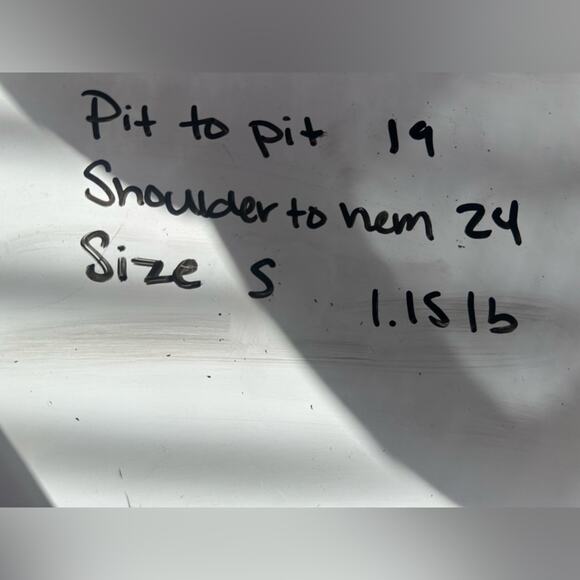 Pit to pit 19
Shoulder to hem 24
Size S
1.15 lb